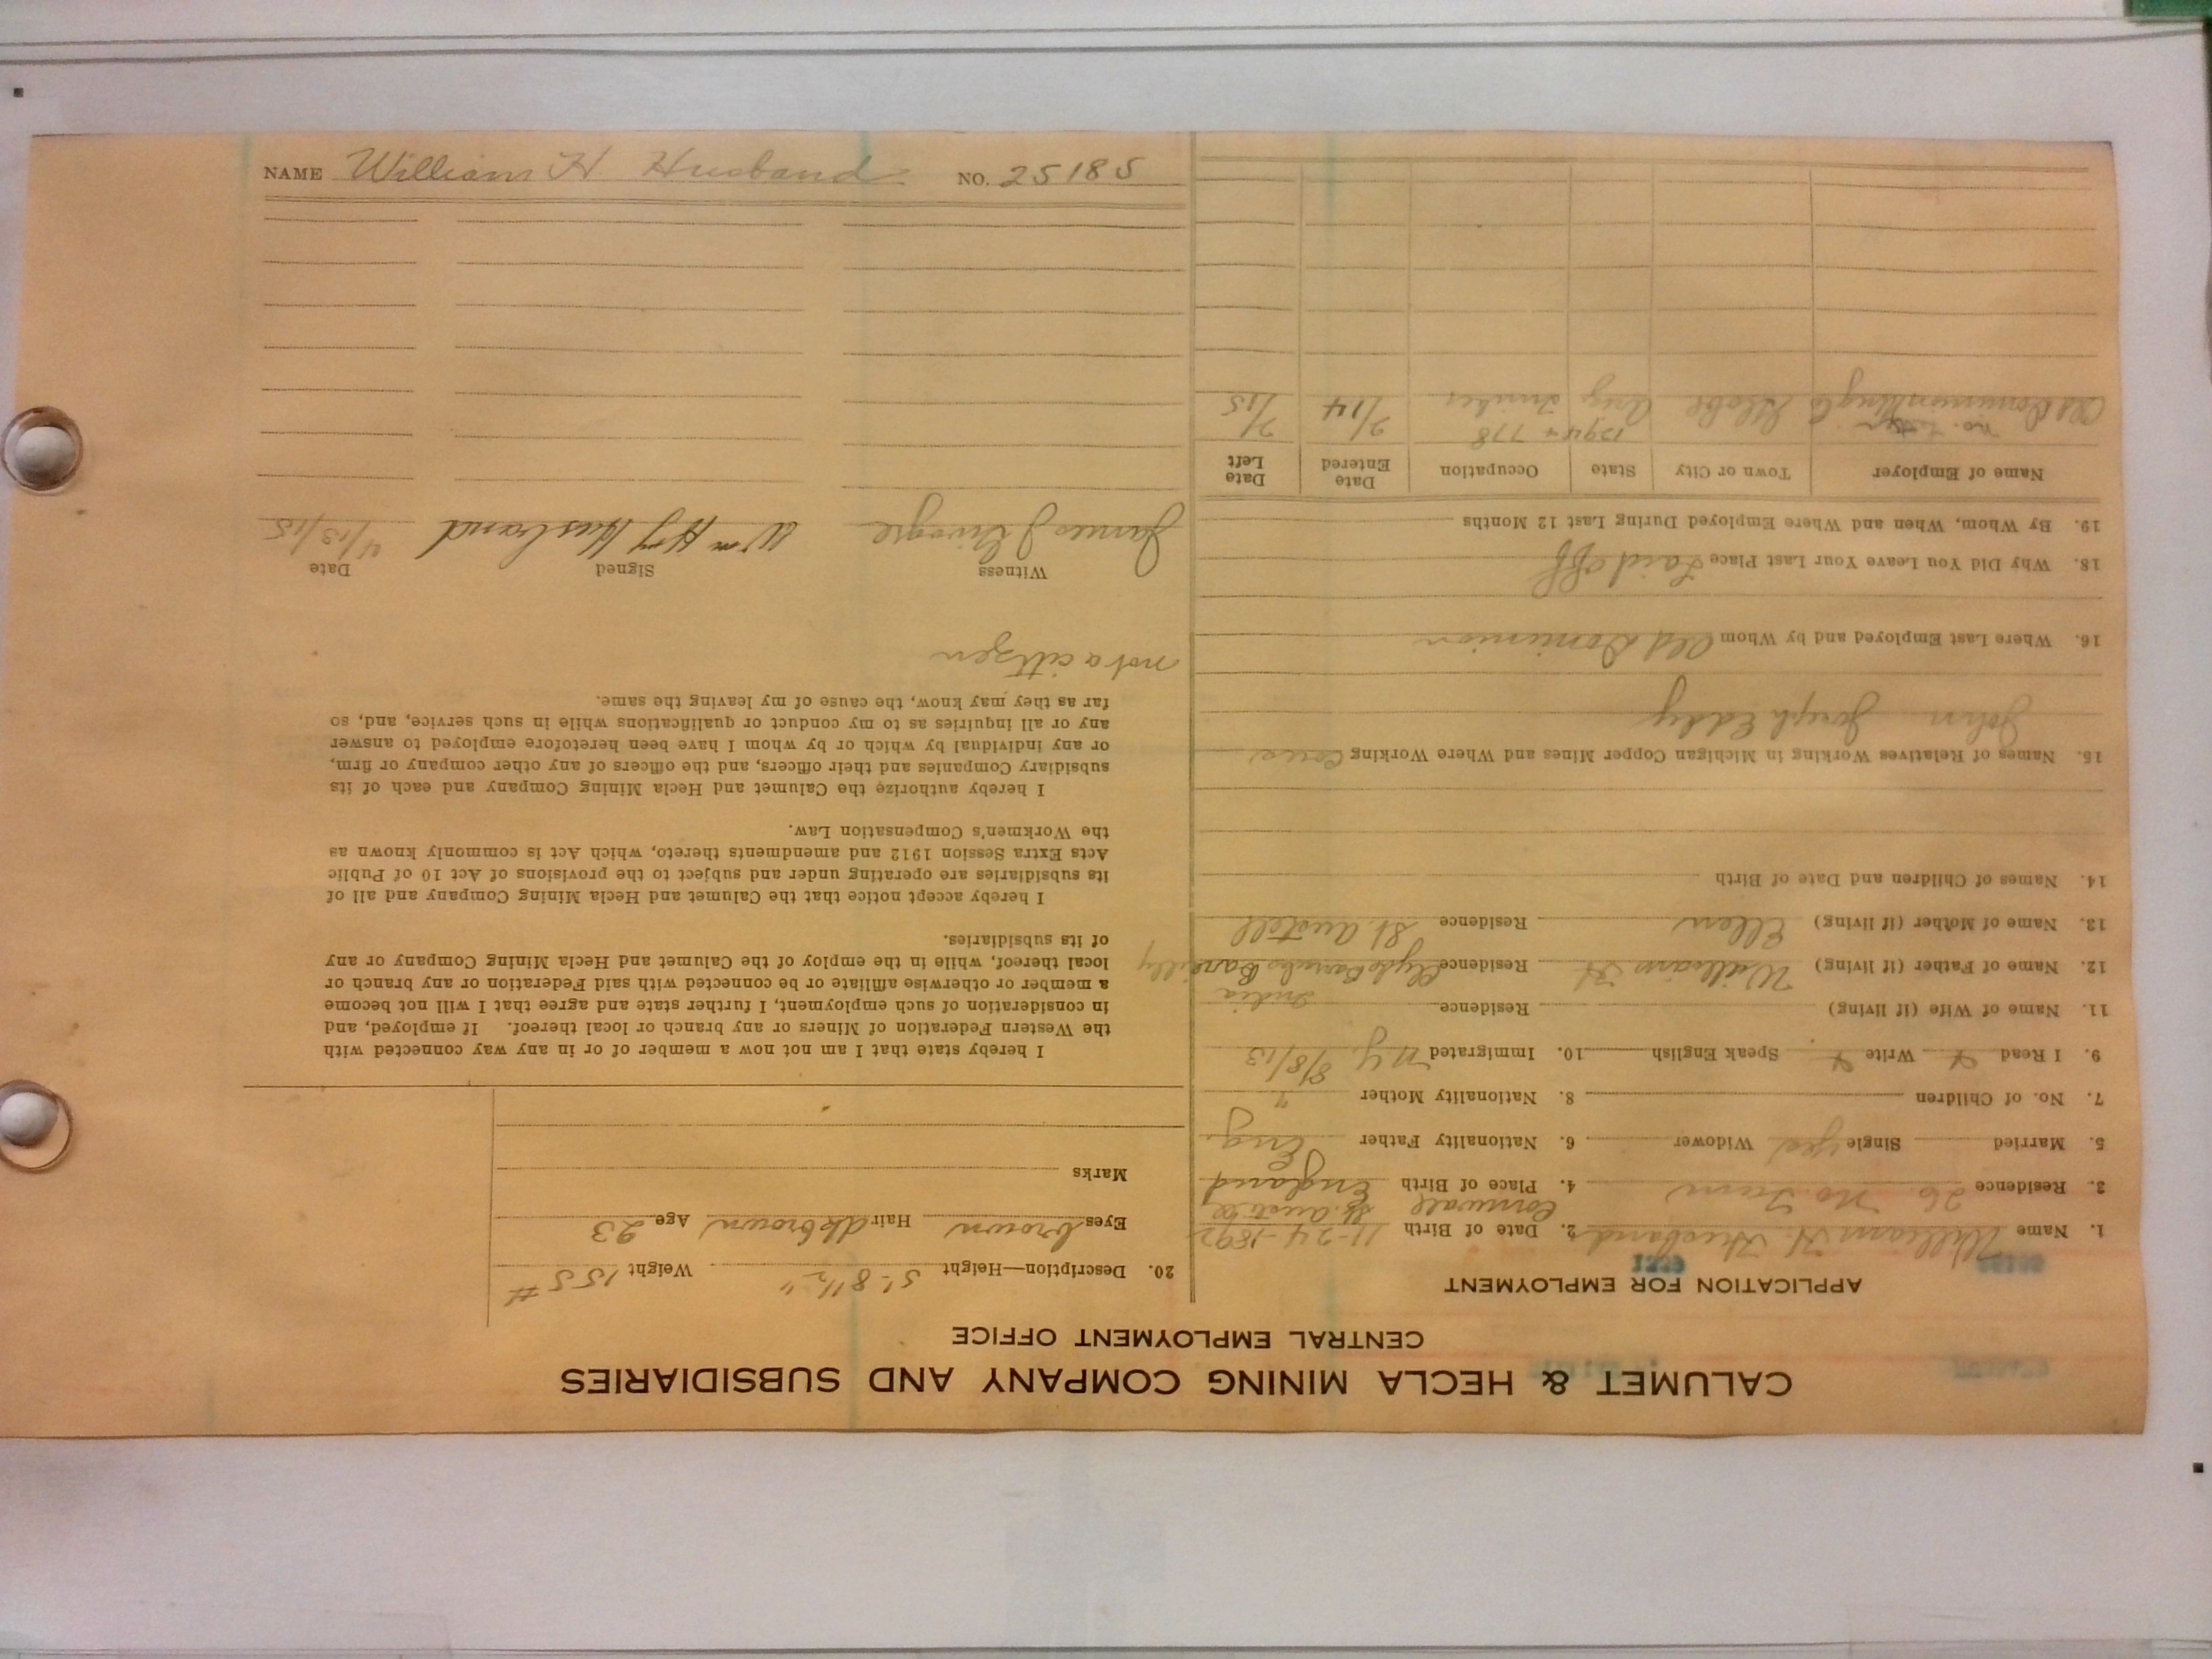 CALUMET & HECLA MINING COMPANY AND SUBSIDIARIES
CENTRAL EMPLOYMENT OFFICE
APPLICATION FOR EMPLOYMENT
1. Name William H. Husband 2. Date of Birth 11-24-1892
Cornwall St. Austell
3. Residence 26 No. 4. Place of Birth England
5. Married Single yes Widower 6. Nationality Father Eng
7. No. of Children 8. Nationality Mother "
9. I Read Write Speak English 10. Immigrated N.Y. 8/8/13
11. Name of Wife (if living) Residence
India
12. Name of Father (if living) William H Residence Clyde
13. Name of Mother (if living) Ellen Residence St. Austell
14. Names of Children and Date of Birth
15. Names of Relatives Working in Michigan Copper Mines and Where Working
John Joseph Eddy
16. Where Last Employed and by Whom Old Dominion
18. Why Did You Leave Your Last Place Laid off
19. By Whom, When and Where Employed During Last 12 Months
Name of Employer Town or City State Occupation Date Entered Date Left
no. 778
Old Dominion Mng Co Globe Ariz 2/14 2/15
20. Description—Height 5'-8 1/2" Weight 155 #
Eyes brown Hair dk brown Age 23
Marks
I hereby state that I am not now a member of or in any way connected with
the Western Federation of Miners or any branch or local thereof. If employed, and
in consideration of such employment, I further state and agree that I will not become
a member or otherwise affiliate or be connected with said Federation or any branch or
local thereof, while in the employ of the Calumet and Hecla Mining Company or any
of its subsidiaries.
I hereby accept notice that the Calumet and Hecla Mining Company and all of
its subsidiaries are operating under and subject to the provisions of Act 10 of Public
Acts Extra Session 1912 and amendments thereto, which Act is commonly known as
the Workmen's Compensation Law.
I hereby authorize the Calumet and Hecla Mining Company and each of its
subsidiary Companies and their officers, and the officers of any other company or firm,
or any individual by which or by whom I have been heretofore employed to answer
any or all inquiries as to my conduct or qualifications while in such service, and, so
far as they may know, the cause of my leaving the same.
not a citizen
Witness Signed Date
James J Wm Hy Husband 4/13/15
NAME William H. Husband NO. 25185